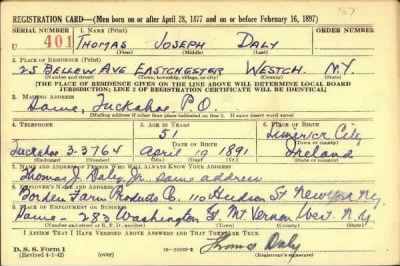 REGISTRATION CARD—(Men born on or after April 28, 1877 and on or before February 16, 1897)
SERIAL NUMBER 1. NAME (Print) ORDER NUMBER
U 401 THOMAS JOSEPH DALY
(First) (Middle) (Last)
2. PLACE OF RESIDENCE (Print)
25 BELLEW AVE EASTCHESTER WESTCH. N.Y.
(Number and street) (Town, township, village, or city) (County) (State)
[THE PLACE OF RESIDENCE GIVEN ON THE LINE ABOVE WILL DETERMINE LOCAL BOARD
JURISDICTION; LINE 2 OF REGISTRATION CERTIFICATE WILL BE IDENTICAL]
3. MAILING ADDRESS
Same, Tuckahoe P.O.
[Mailing address if other than place indicated on line 2. If same insert word same]
4. TELEPHONE 5. AGE IN YEARS 6. PLACE OF BIRTH
51 Limerick City
DATE OF BIRTH (Town or county)
Tuckahoe 3-3764 April 19 1891 Ireland
(Exchange) (Number) (Mo.) (Day) (Yr.) (State or country)
7. NAME AND ADDRESS OF PERSON WHO WILL ALWAYS KNOW YOUR ADDRESS
Thomas J. Daly, Jr. same address
8. EMPLOYER'S NAME AND ADDRESS
Borden Farm Products Co. 110 Hudson St New York N.Y.
9. PLACE OF EMPLOYMENT OR BUSINESS
Same - 283 Washington St. Mt Vernon West. N.Y.
(Number and street or R. F. D. number) (Town) (County) (State)
I AFFIRM THAT I HAVE VERIFIED ABOVE ANSWERS AND THAT THEY ARE TRUE.
D. S. S. Form 1
(Revised 4-1-42) (over) Thomas Daly
(Registrant's signature)